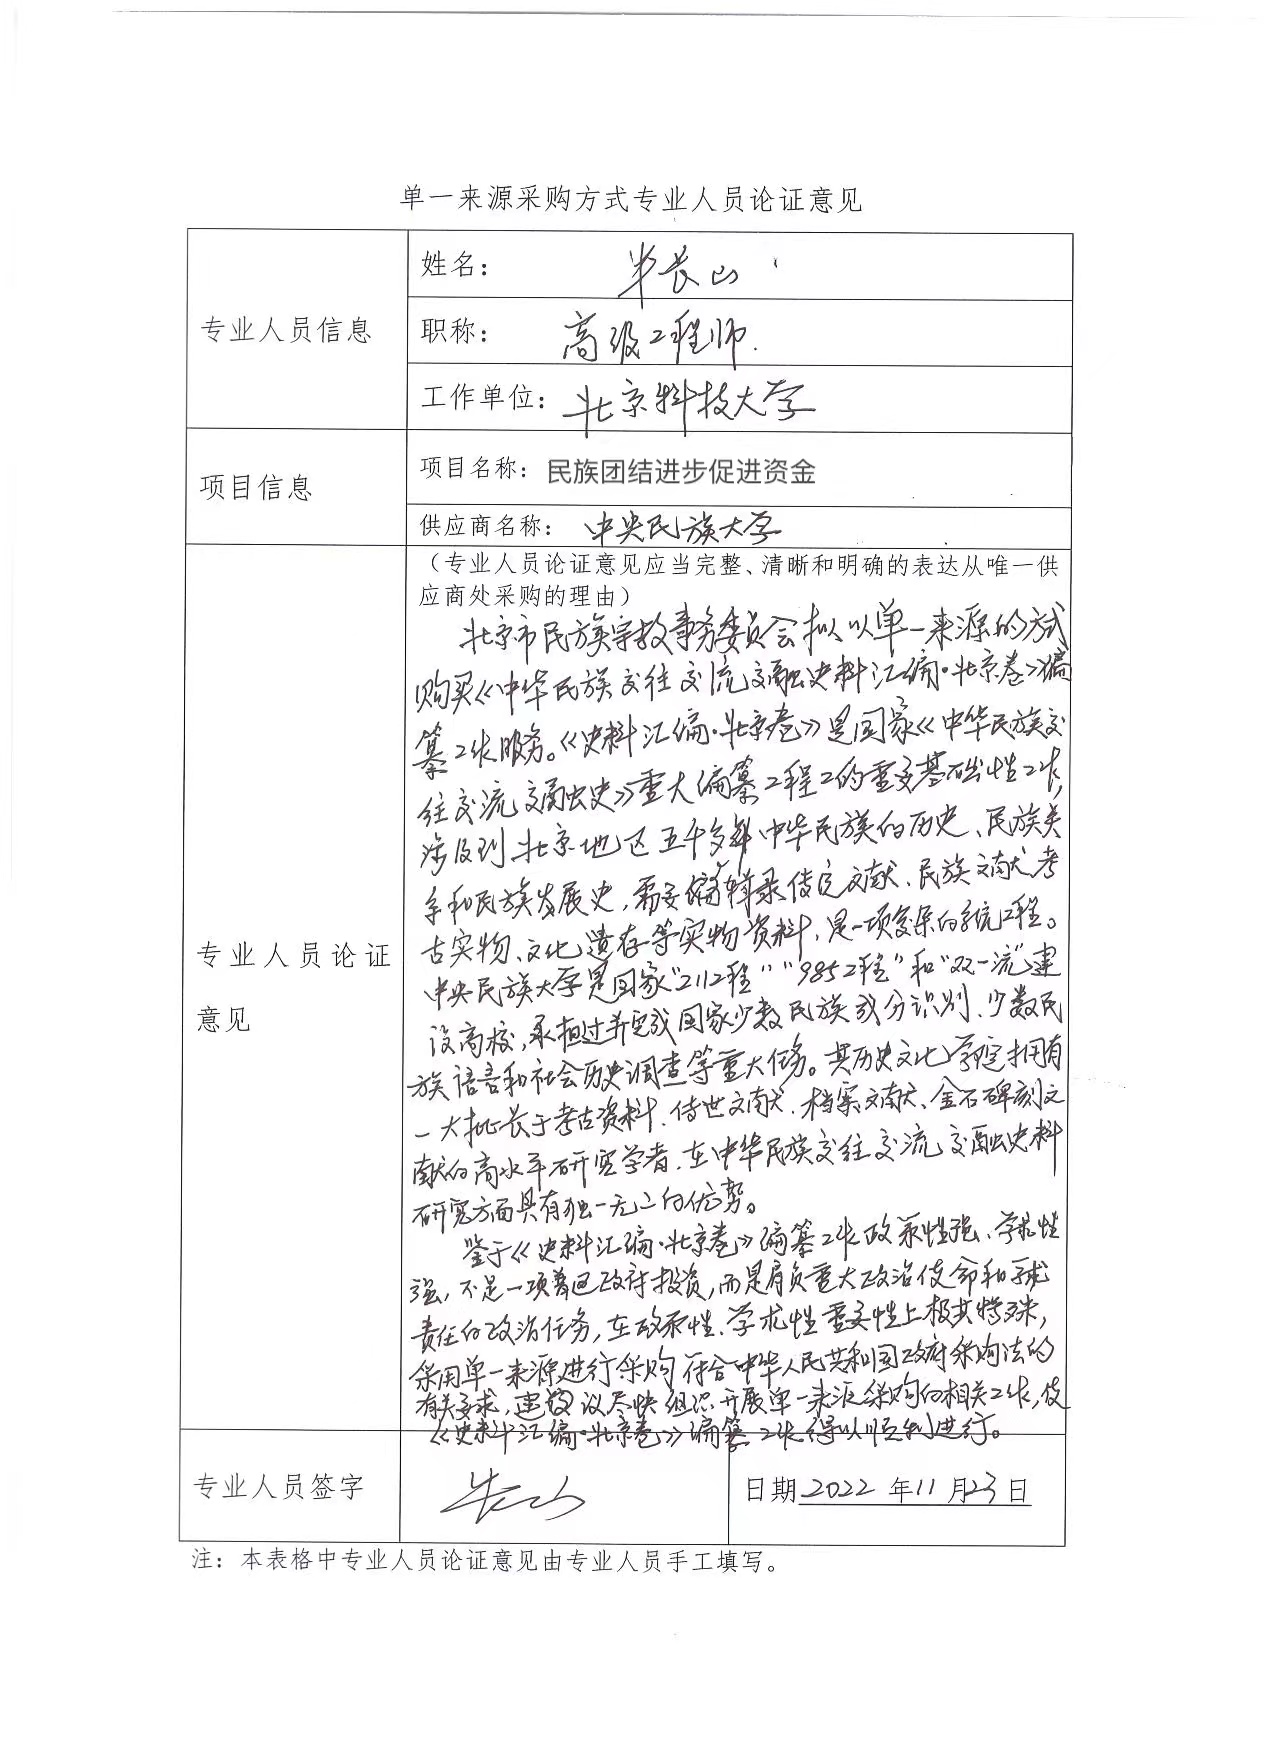 单一来源采购方式专业人员论证意见
专业人员信息
姓名： 半长山
职称： 高级工程师.
工作单位： 北京科技大学
项目信息
项目名称： 民族团结进步促进资金
供应商名称： 中央民族大学
专业人员论证
意见
（专业人员论证意见应当完整、清晰和明确的表达从唯一供
应商处采购的理由）
北京市民族宗教事务委员会拟以单一来源的方式
购买《中华民族交往交流交融史料汇编·北京卷》编
纂工作服务。《史料汇编·北京卷》是国家《中华民族交
往交流交融史》重大编纂工程工的重要基础性工作,
涉及到北京地区五千多年中华民族的历史、民族关
系和民族发展史,需要编辑录传定文献、民族文献考
古实物、文化遗存等实物资料,是一项复杂的系统工程。
中央民族大学是国家“211工程”“985工程”和“双一流”建
设高校,承担过并完成国家少数民族成分识别、少数民
族语言和社会历史调查等重大任务。其历史文化学院拥有
一大批长于考古资料、传世文献、档案文献、金石碑刻文
献的高水平研究学者,在中华民族交往交流交融史料
研究方面具有独一无二的优势。
鉴于《史料汇编·北京卷》编纂工作政策性强、学术性
强,不是一项普通政府投资,而是肩负重大政治使命和
责任的政治任务,在政策性、学术性重要性上极其特殊,
采用单一来源进行采购符合中华人民共和国政府采购法的
有关要求,建议尽快组织开展单一来源采购的相关工作,使
《史料汇编·北京卷》编纂工作得以顺利进行。
专业人员签字
日期 2022 年 11 月 23 日
注：本表格中专业人员论证意见由专业人员手工填写。